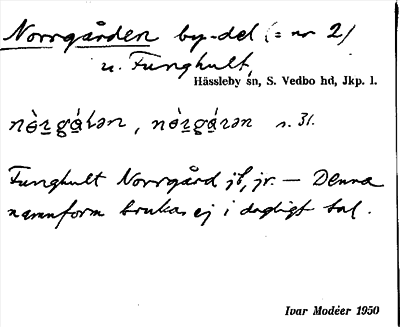 Norrgården by-del (= nr 2)
u. Funghult,
Hässleby sn, S. Vedbo hd, Jkp. l.
nèrgálən, nèrgárən s. 31.
Funghult Norrgård jb, jr. — Denna
namnform brukas ej i dagligt tal.
Ivar Modéer 1950